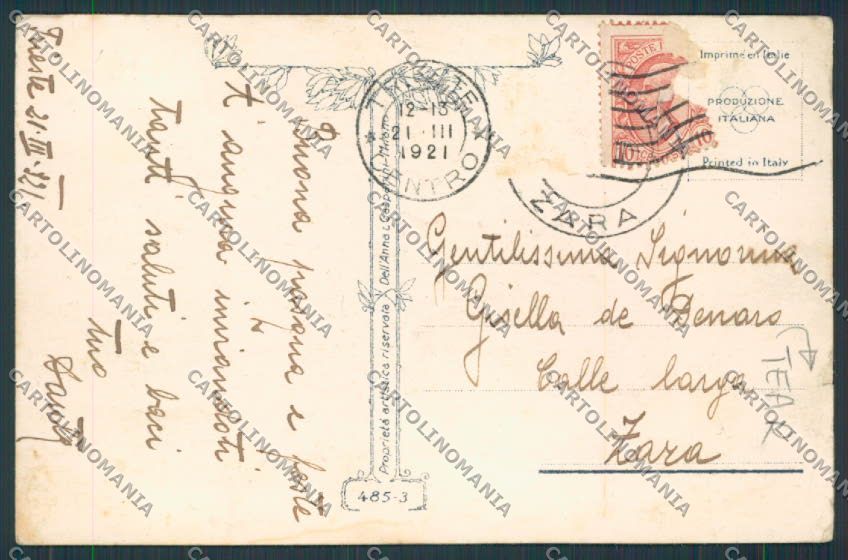 Trieste 21-III-921
Buona pasqua e feste
t'auguro inviandoti
tanti saluti e baci
tuo
TRIESTE
12-13
21 III
1921
CENTRO
ZARA
POSTE
10
10
Imprimé en Italie
PRODUZIONE
ITALIANA
Printed in Italy
Gentilissima Signorina
Gisella de Denaro
Calle larga
Zara
TEAR
Proprietà artistica riservata Dell'Anna & Gasparini-Milano
485-3
CARTOLINOMANIA